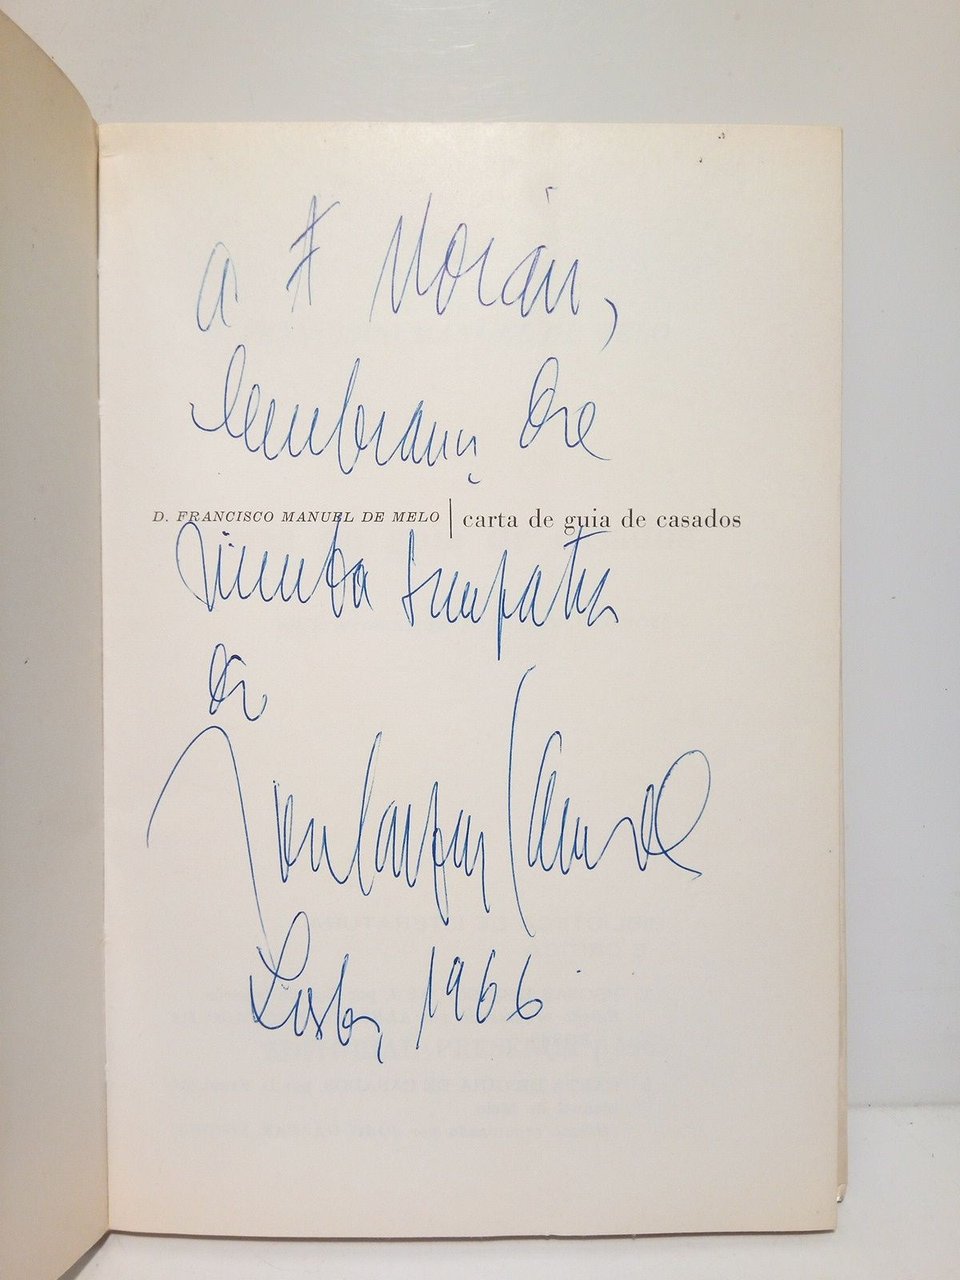 a F Morán,
lembrança de
D. FRANCISCO MANUEL DE MELO | carta de guia de casados
muita simpatia
de
Lisboa, 1966